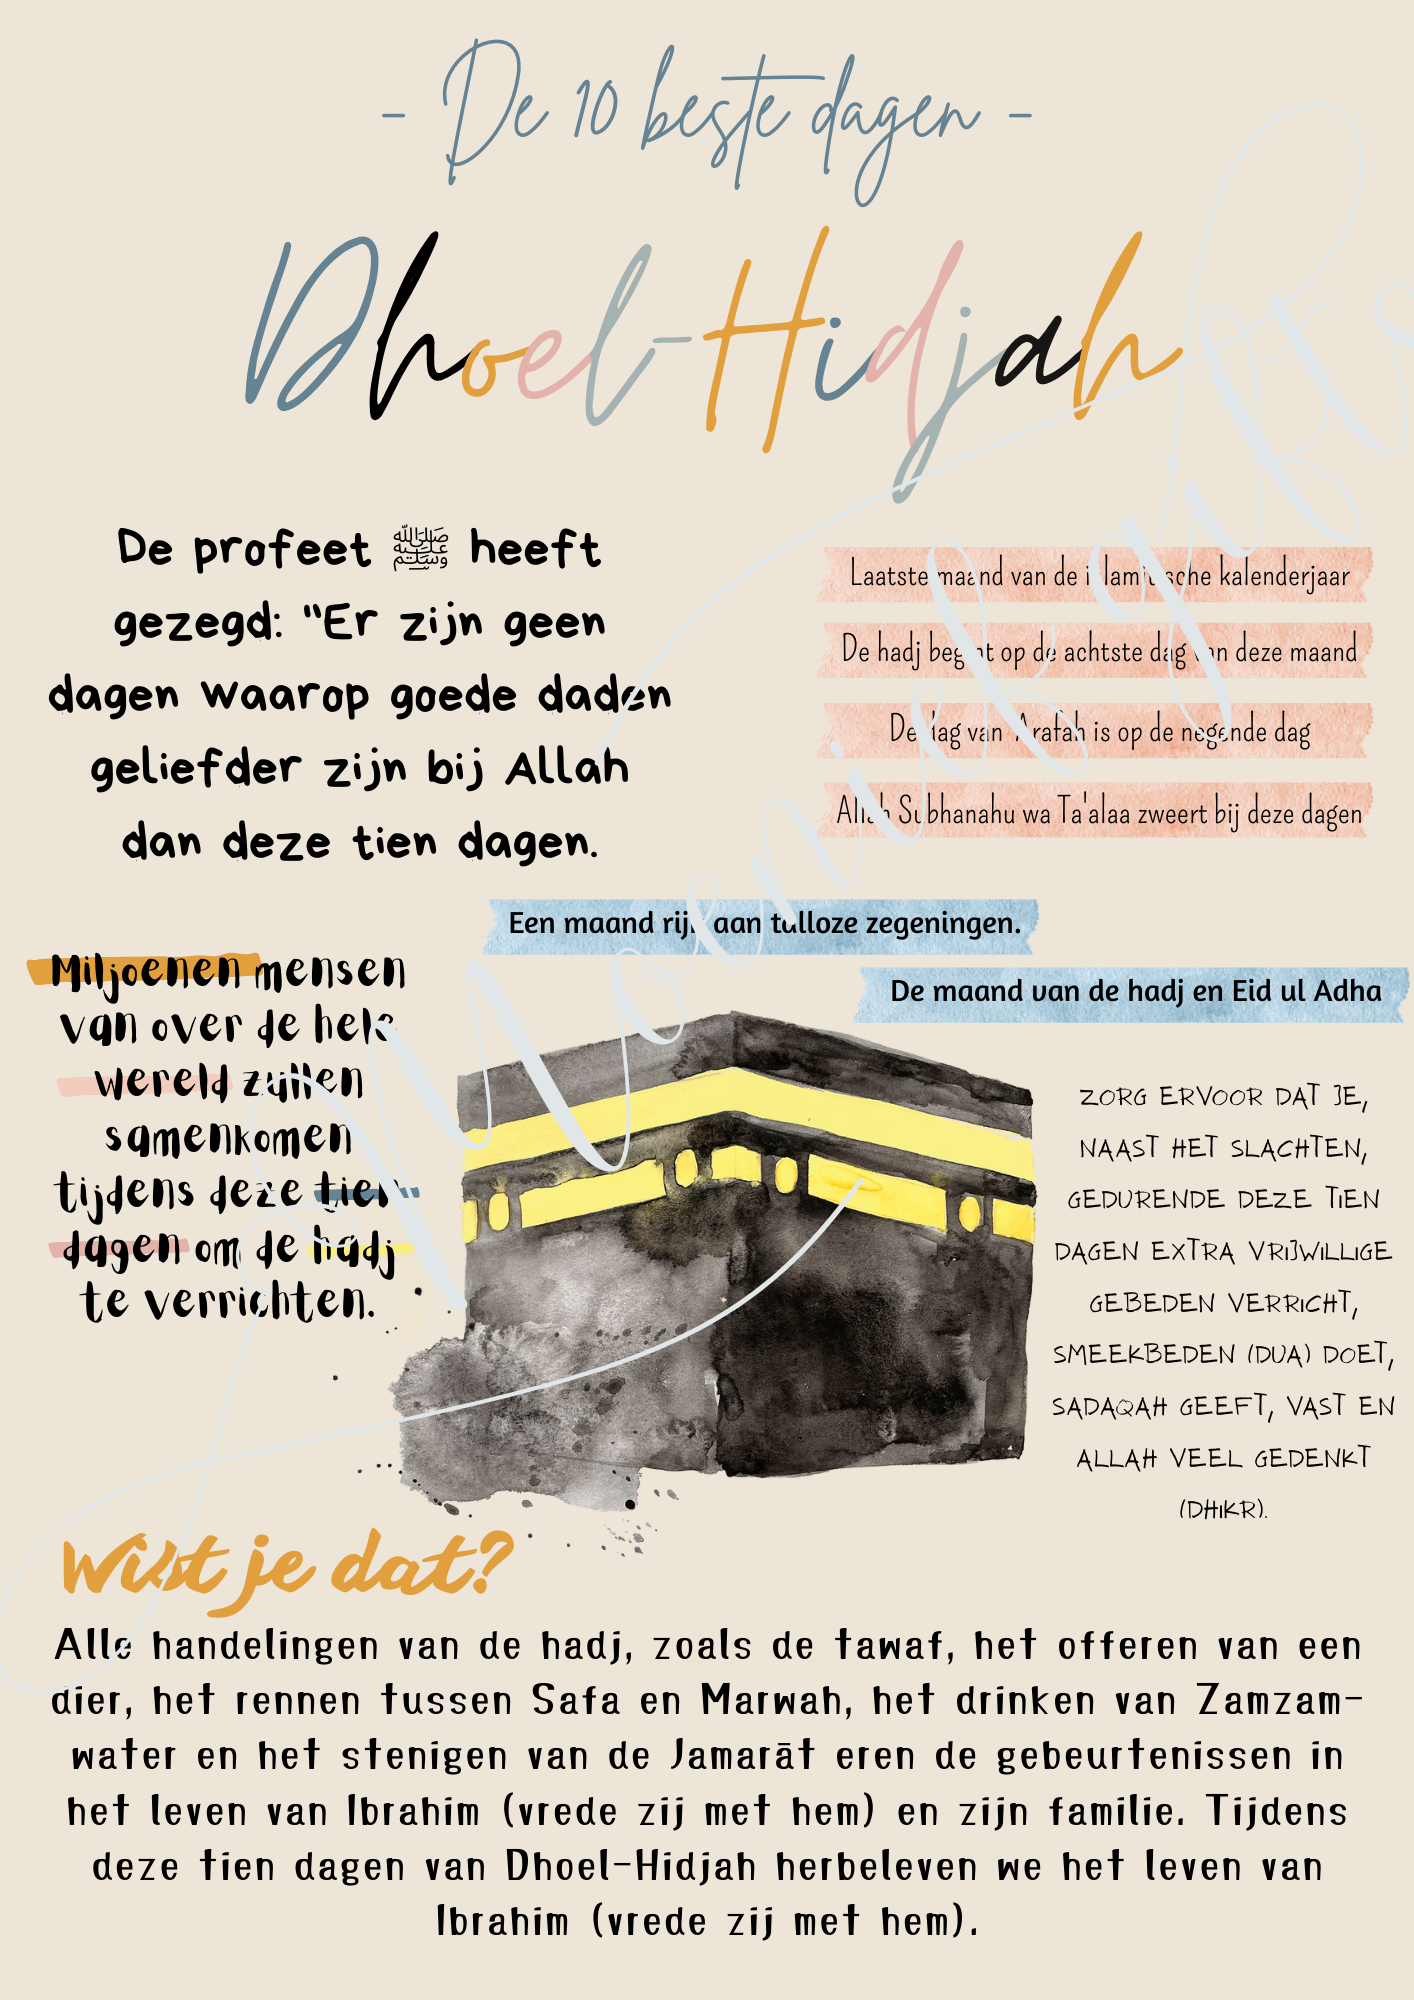 - De 10 beste dagen -
Dhoel-Hidjah
De profeet ﷺ heeft
gezegd: "Er zijn geen
dagen waarop goede daden
geliefder zijn bij Allah
dan deze tien dagen.
Laatste maand van de islamitische kalenderjaar
De hadj begint op de achtste dag van deze maand
De dag van 'Arafah is op de negende dag
Allah Subhanahu wa Ta'alaa zweert bij deze dagen
Een maand rijk aan talloze zegeningen.
De maand van de hadj en Eid ul Adha
Miljoenen mensen
van over de hele
wereld zullen
samenkomen
tijdens deze tien
dagen om de hadj
te verrichten.
ZORG ERVOOR DAT JE,
NAAST HET SLACHTEN,
GEDURENDE DEZE TIEN
DAGEN EXTRA VRIJWILLIGE
GEBEDEN VERRICHT,
SMEEKBEDEN (DUA) DOET,
SADAQAH GEEFT, VAST EN
ALLAH VEEL GEDENKT
(DHIKR).
Wist je dat?
Alle handelingen van de hadj, zoals de tawaf, het offeren van een
dier, het rennen tussen Safa en Marwah, het drinken van Zamzam-
water en het stenigen van de Jamarāt eren de gebeurtenissen in
het leven van Ibrahim (vrede zij met hem) en zijn familie. Tijdens
deze tien dagen van Dhoel-Hidjah herbeleven we het leven van
Ibrahim (vrede zij met hem).